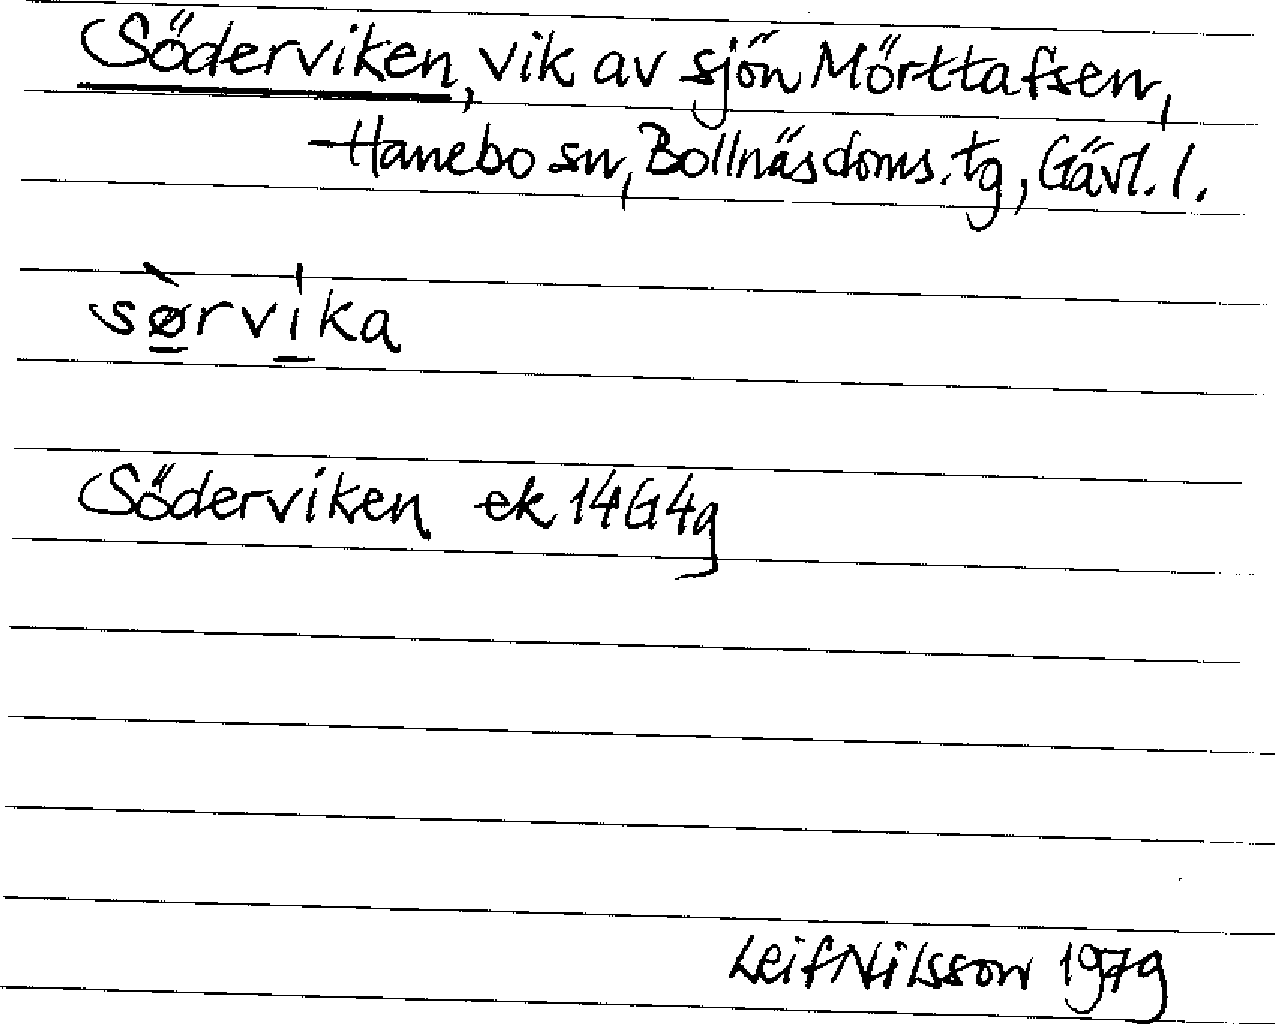 Söderviken, vik av sjön Mörttafsen,
Hanebo sn, Bollnäs doms. tg, Gävl. l.
sø̀rvíka
Söderviken ek 14G4g
Leif Nilsson 1979